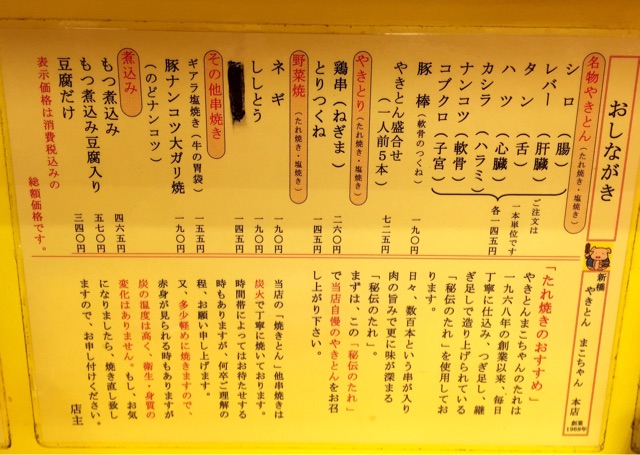 おしながき
名物やきとん（たれ焼き・塩焼き）
シロ（腸）
レバー（肝臓）
タン（舌）
ハツ（心臓）
カシラ（ハラミ）
ナンコツ（軟骨）
コブクロ（子宮）
ご注文は
一本単位です
各一四五円
豚棒（軟骨のつくね） 一九〇円
やきとん盛合せ
（一人前５本） 七二五円
やきとり（たれ焼き・塩焼き）
鶏串（ねぎま） 二六〇円
とりつくね 一四五円
野菜焼（たれ焼き・塩焼き）
ネギ 一九〇円
ししとう 一九〇円
一四五円
その他串焼き
ギアラ塩焼き（牛の胃袋） 一五五円
豚ナンコツ大ガリ焼 一九〇円
（のどナンコツ）
煮込み
もつ煮込み 四六五円
もつ煮込み豆腐入り 五七〇円
豆腐だけ 三四〇円
表示価格は消費税込みの
総額価格です。
新橋
やきとん まこちゃん 本店
創業
1968年
「たれ焼きのおすすめ」
やきとんまこちゃんのたれは
一九六八年の創業以来、毎日
丁寧に仕込み、つぎ足し、継
ぎ足しで造り上げられている
「秘伝のたれ」を使用してお
ります。
日々、数百本という串が入り
肉の旨みで更に味が深まる
「秘伝のたれ」。
まずは、この「秘伝のたれ」
で当店自慢のやきとんをお召
し上がり下さい。
当店の「焼きとん」他串焼きは
炭火で丁寧に焼いております。
時間帯によってはお待たせする
時もありますが、何卒ご理解の
程、お願い申し上げます。
又、多少軽めに焼きますので、
赤身が見られる時もありますが
炭の温度は高く、衛生・身質の
変化はありません。もし、お気
になりましたら、焼き直し致し
ますので、お申し付けください。
店主